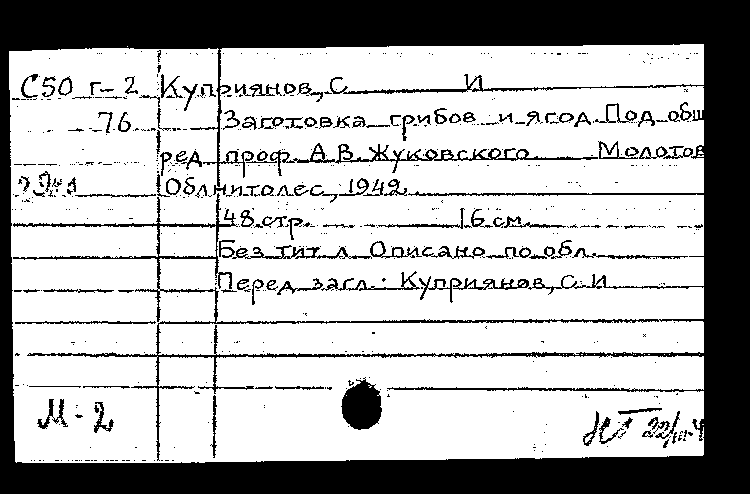 С50 г-2 Куприянов, С И
76 Заготовка грибов и ягод. Под общ
ред. проф. А.В. Жуковского. Молотов
Облнитолес, 1942.
48 стр. 16 см.
Без тит. л. Описано по обл.
Перед загл.: Куприянов, С. И.
М-2